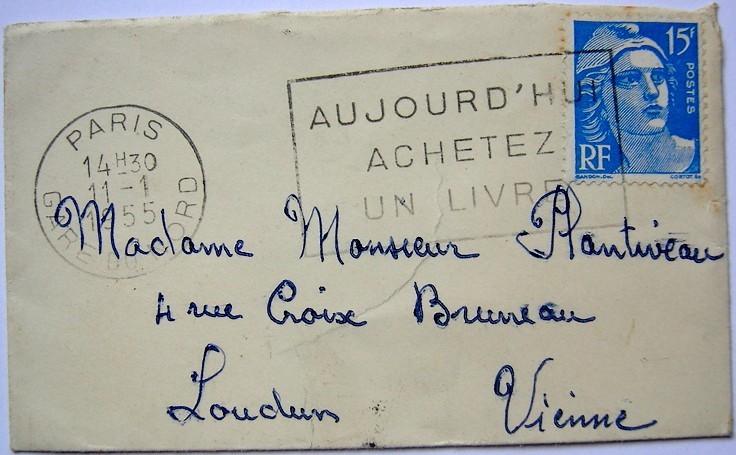 PARIS
14H30
11-1
1955
GARE DU NORD
AUJOURD'HUI
ACHETEZ
UN LIVRE
15F
POSTES
RF
GANDON.Del.
CORTOT.Sc
Madame Monsieur Plantiveau
4 rue Croix Bruneau
Loudun Vienne